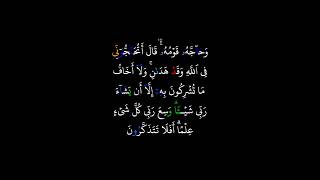 وَحَآجَّهُۥ قَوْمُهُۥ ۚ قَالَ أَتُحَـٰٓجُّوٓنِّى
فِى ٱللَّهِ وَقَدْ هَدَىٰنِ ۚ وَلَآ أَخَافُ
مَا تُشْرِكُونَ بِهِۦٓ إِلَّآ أَن يَشَآءَ
رَبِّى شَيْـًٔا ۗ وَسِعَ رَبِّى كُلَّ شَىْءٍ
عِلْمًا ۗ أَفَلَا تَتَذَكَّرُونَ